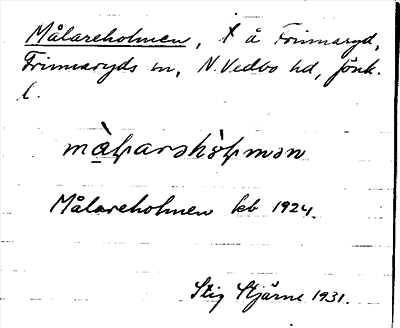 Målareholmen, t å Frinnaryd,
Frinnaryds sn, N. Vedbo hd, Jönk.
l.
Målareholmen kb 1924.
Stig Stjärne 1931.